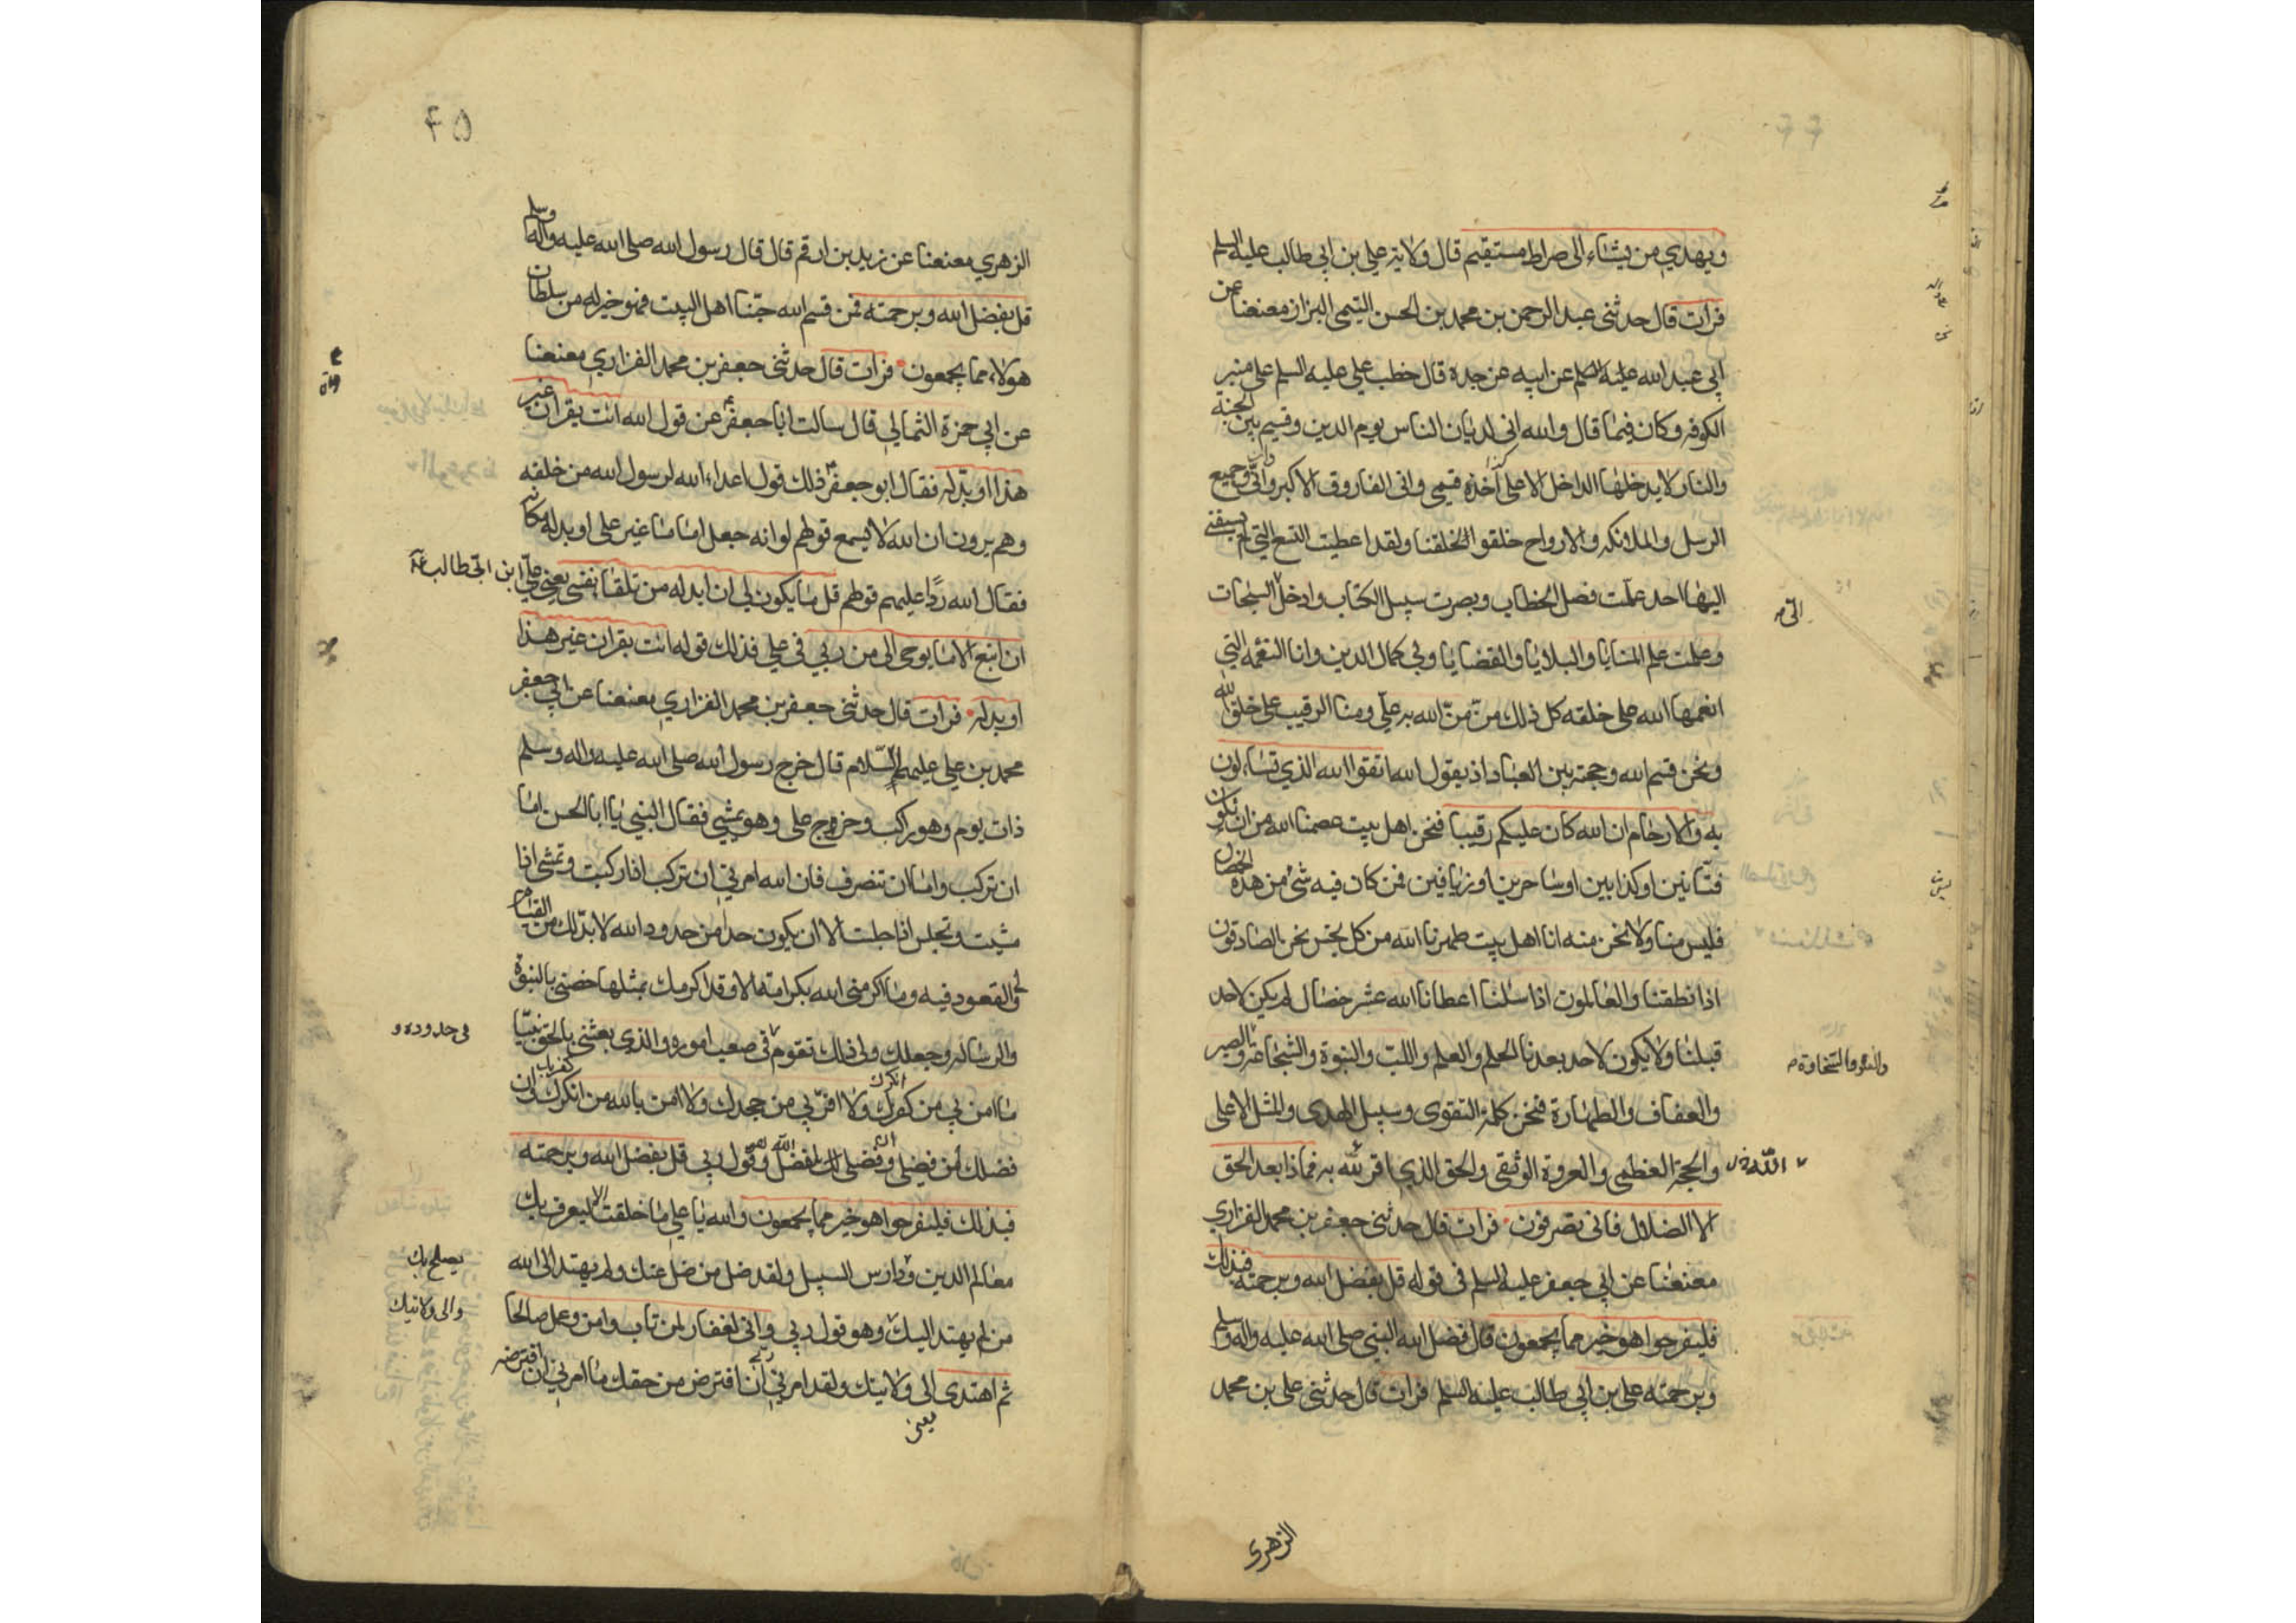 ويهدي من يشاء الى صراط مستقيم قال ولاية علي بن ابي طالب عليه السلم
فرات قال حدثنى عبد الرحمن بن محمد بن الحسن التيمى البزاز معنعنا عن
ابي عبد الله عليه السلم عن ابيه عن جده قال خطب علي عليه السلم على منبر
الكوفه وكان فيما قال والله انى لديان الناس يوم الدين وقسيم بين الجنة
والنار لا يدخلها الداخل الا على أحد قسمي وانى الفاروق الاكبر وانّ جميع
الرسل والملائكه والارواح خلقوا لخلقنا ولقد اعطيت التسع التي لم يسبقنى
اليها احد علمت فصل الخطاب وبصرت سبيل الكتاب وادخل السبحات
الى
وعلمت علم المنايا والبلايا والقضايا وبي كمال الدين وانا النعمه التي
انعمها الله على خلقه كل ذلك منّ منّ الله به علي ومنا الرقيب على خلق الله
ونحن قسم الله وحجته بين العباد اذ يقول الله اتقوا الله الذي تساءلون
به والارحام ان الله كان عليكم رقيبا فنحن اهل بيت عصمنا الله من ان نكون
فتانين او كذابين او ساحرين او زيافين فمن كان فيه شئ من هذه الخصال
فليس منا ولا نحن منه انا اهل بيت طهرنا الله من كل نجس نحن الصادقون
اذا نطقنا والعالمون اذا سئلنا اعطانا الله عشر خصال لم يكن لاحد
قبلنا ولا يكون لاحد بعدنا الحلم والعلم واللب والنبوة والشجاعة والصبر
والعفاف والطهارة فنحن كلمة التقوى وسبيل الهدى والمثل الاعلى
والحجة العظمى والعروة الوثقى والحق الذي اقر لله به فماذا بعد الحق
الله
الا الضلال فانى تصرفون فرات قال حدثنى جعفر بن محمد الفزاري
معنعنا عن ابي جعفر عليه السلم فى قوله قل بفضل الله وبرحمته فبذلك
فليفرحوا هو خير مما يجمعون قال فضل الله النبي صلى الله عليه واله وسلم
وبرحمته على بن ابي طالب عليه السلم فرات قال حدثنى على بن محمد
الزهرى
۴۵
الزهري معنعنا عن زيد بن ارقم قال قال رسول الله صلى الله عليه وآله وسلم
قل بفضل الله وبرحمته فمن قسم الله حبّنا اهل البيت فهو خير له من سلطان
هولاء مما يجمعون فرات قال حدثنى جعفر بن محمد الفزاري معنعنا
عن ابي حمزة الثمالي قال سالت ابا جعفر عن قول الله ائت بقران غير
هذا او بدله فقال ابو جعفر ذلك قول اعداء الله لرسول الله من خلفه
وهم يرون ان الله لا يسمع قولهم لو انه جعل اماما غير علي او بدله مكانه
فقال الله ردًا عليهم قولهم قل ما يكون لي ان ابدله من تلقاء نفسي يعني علي ابن ابي طالب
ان اتبع الا ما يوحى الى من ربي في علي فذلك قوله ائت بقران غير هذا
او بدله فرات قال حدثنى جعفر بن محمد الفزاري معنعنا عن ابي جعفر
محمد بن علي عليهم السّلام قال خرج رسول الله صلى الله عليه واله وسلم
ذات يوم وهو راكب وخرج على وهو يمشي فقال النبي يا ابا الحسن اما
ان تركب واما ان تنصرف فان الله امرني ان تركب اذا ركبت وتمشي اذا
مشيت وتجلس اذا جلست الا ان يكون حد من حدود الله لا بدّ لك من القيام
والقعود فيه وما اكرمنى الله بكرامة الا وقد اكرمك بمثلها خصنى بالنبوة
والرسالة وجعلك ولى ذلك تقوم فى صعب اموره والذي بعثني بالحق نبيّا
فى حدوده و
ما امن بي من كفر بك ولا اقرّ بي من جحدك ولا امن بالله من انكرك وان
فضلك من فضلي وفضلى لك لفضل الله وهو قول ربي قل بفضل الله وبرحمته
فبذلك فليفرحوا هو خير مما يجمعون والله يا علي ما خلقت الا ليعرف بك
معالم الدين ودارس السبيل ولقد ضل من ضل عنك ولم يهتد الى الله
يصلح بك
من لم يهتد اليك وهو قول ربي وانى لغفار لمن تاب وامن وعمل صالحا
والى ولايتك
ثم اهتدى الى ولايتك ولقد امرني ان افترض من حقك ما امرني ان افترضه
يعنى